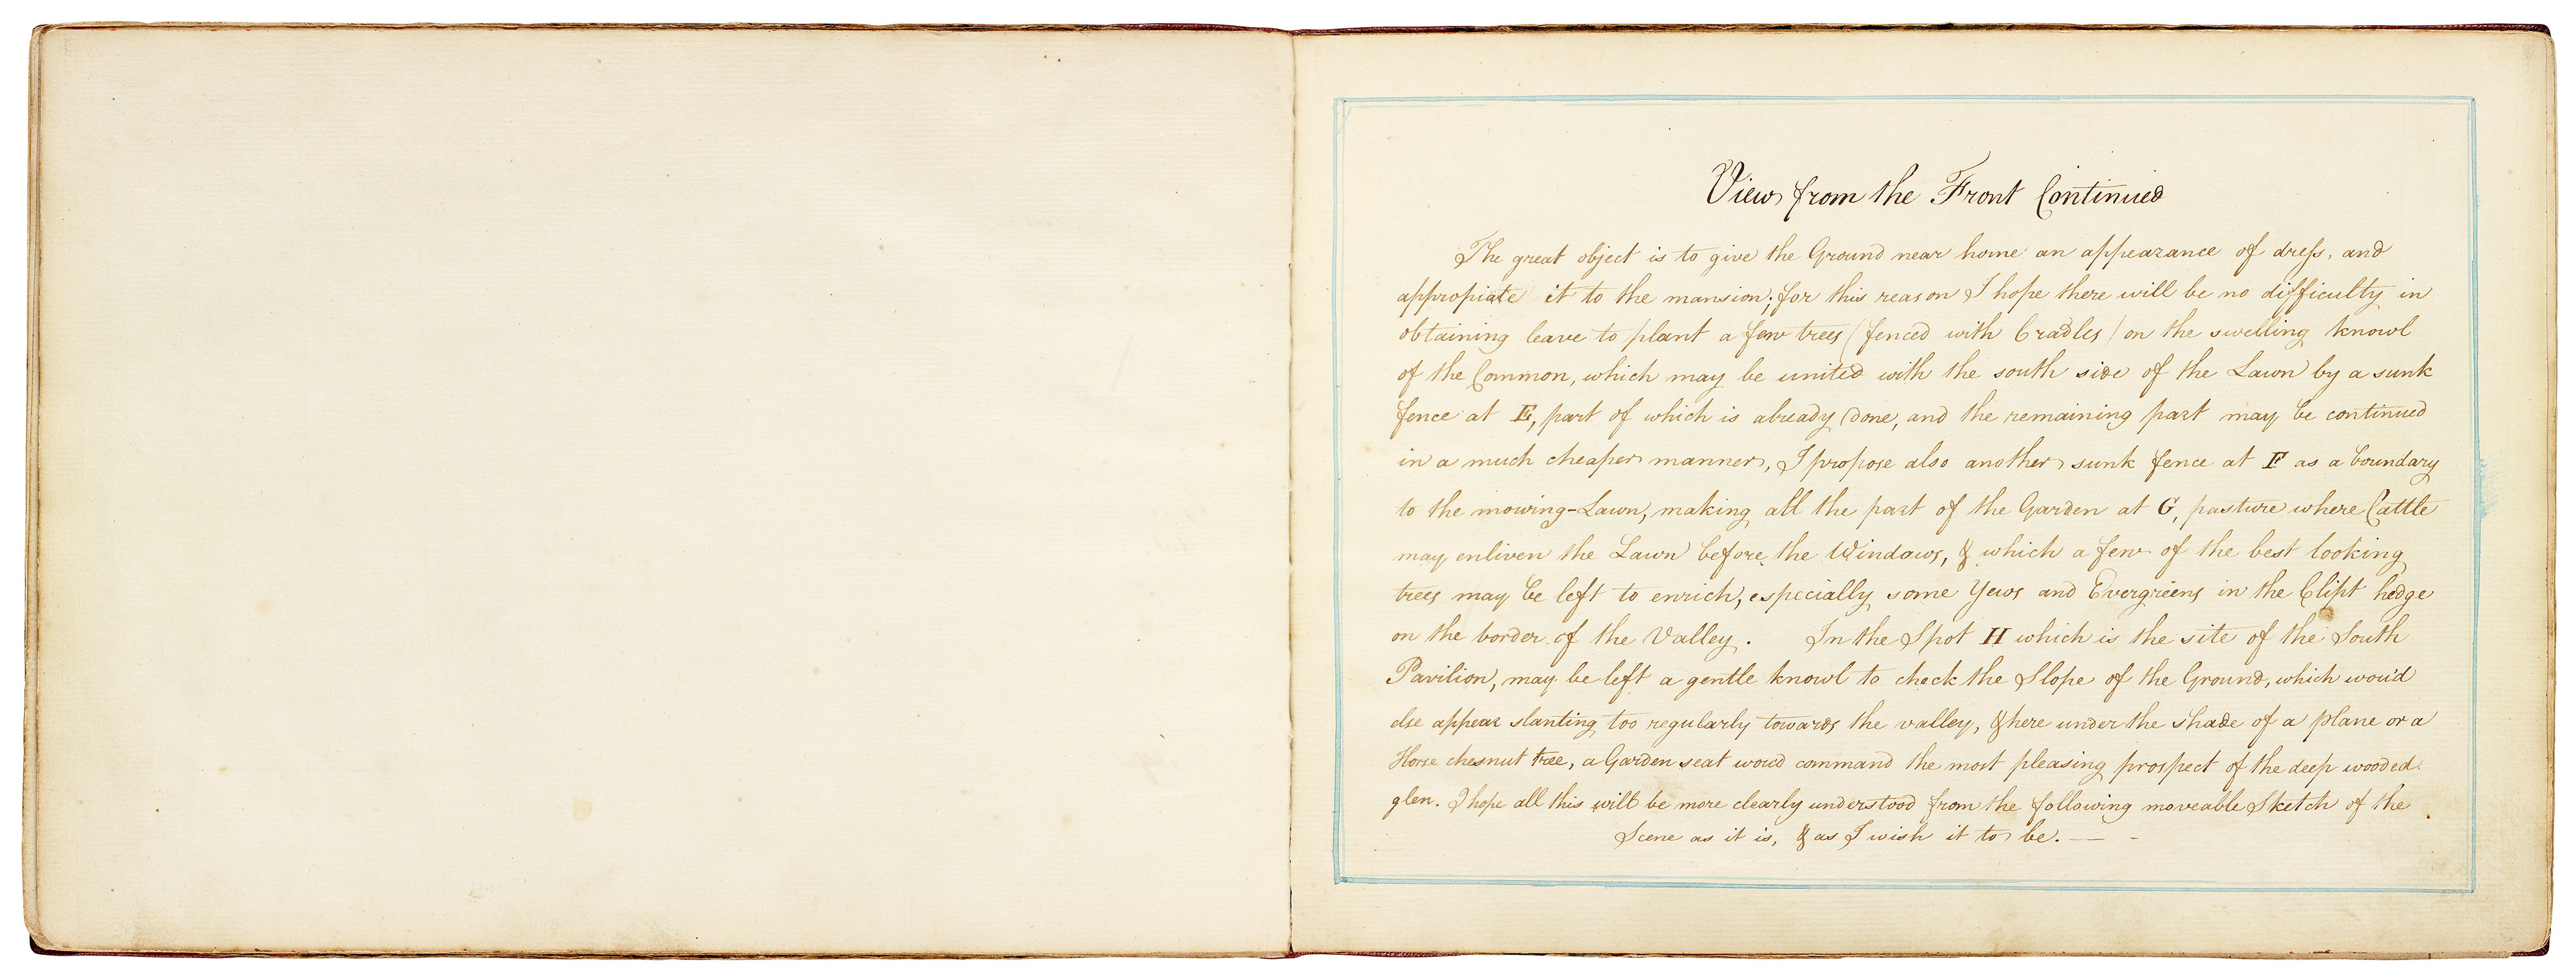 View from the Front Continued
The great object is to give the Ground near home an appearance of dreſs, and
appropiate it to the mansion; for this reason I hope there will be no difficulty in
obtaining leave to plant a few trees (fenced with Cradles) on the swelling knowl
of the Common, which may be united with the south side of the Lawn by a sunk
fence at E, part of which is already done, and the remaining part may be continued
in a much cheaper manner, I propose also another sunk fence at F as a boundary
to the mowing-Lawn, making all the part of the Garden at G, pasture where Cattle
may enliven the Lawn before the Windows, & which a few of the best looking
trees may be left to enrich, especially some Yews and Evergreens in the Clipt hedge
on the border of the Valley. In the Spot H which is the site of the South
Pavilion, may be left a gentle knowl to check the Slope of the Ground, which wou'd
else appear slanting too regularly towards the valley, & here under the shade of a plane or a
Horse chesnut tree, a Garden seat woud command the most pleasing prospect of the deep wooded
glen. I hope all this will be more clearly understood from the following moveable Sketch of the
Scene as it is, & as I wish it to be. — -